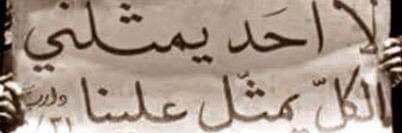 لا أحَد يمثلني
الكلّ يمثّل علينا
داريا